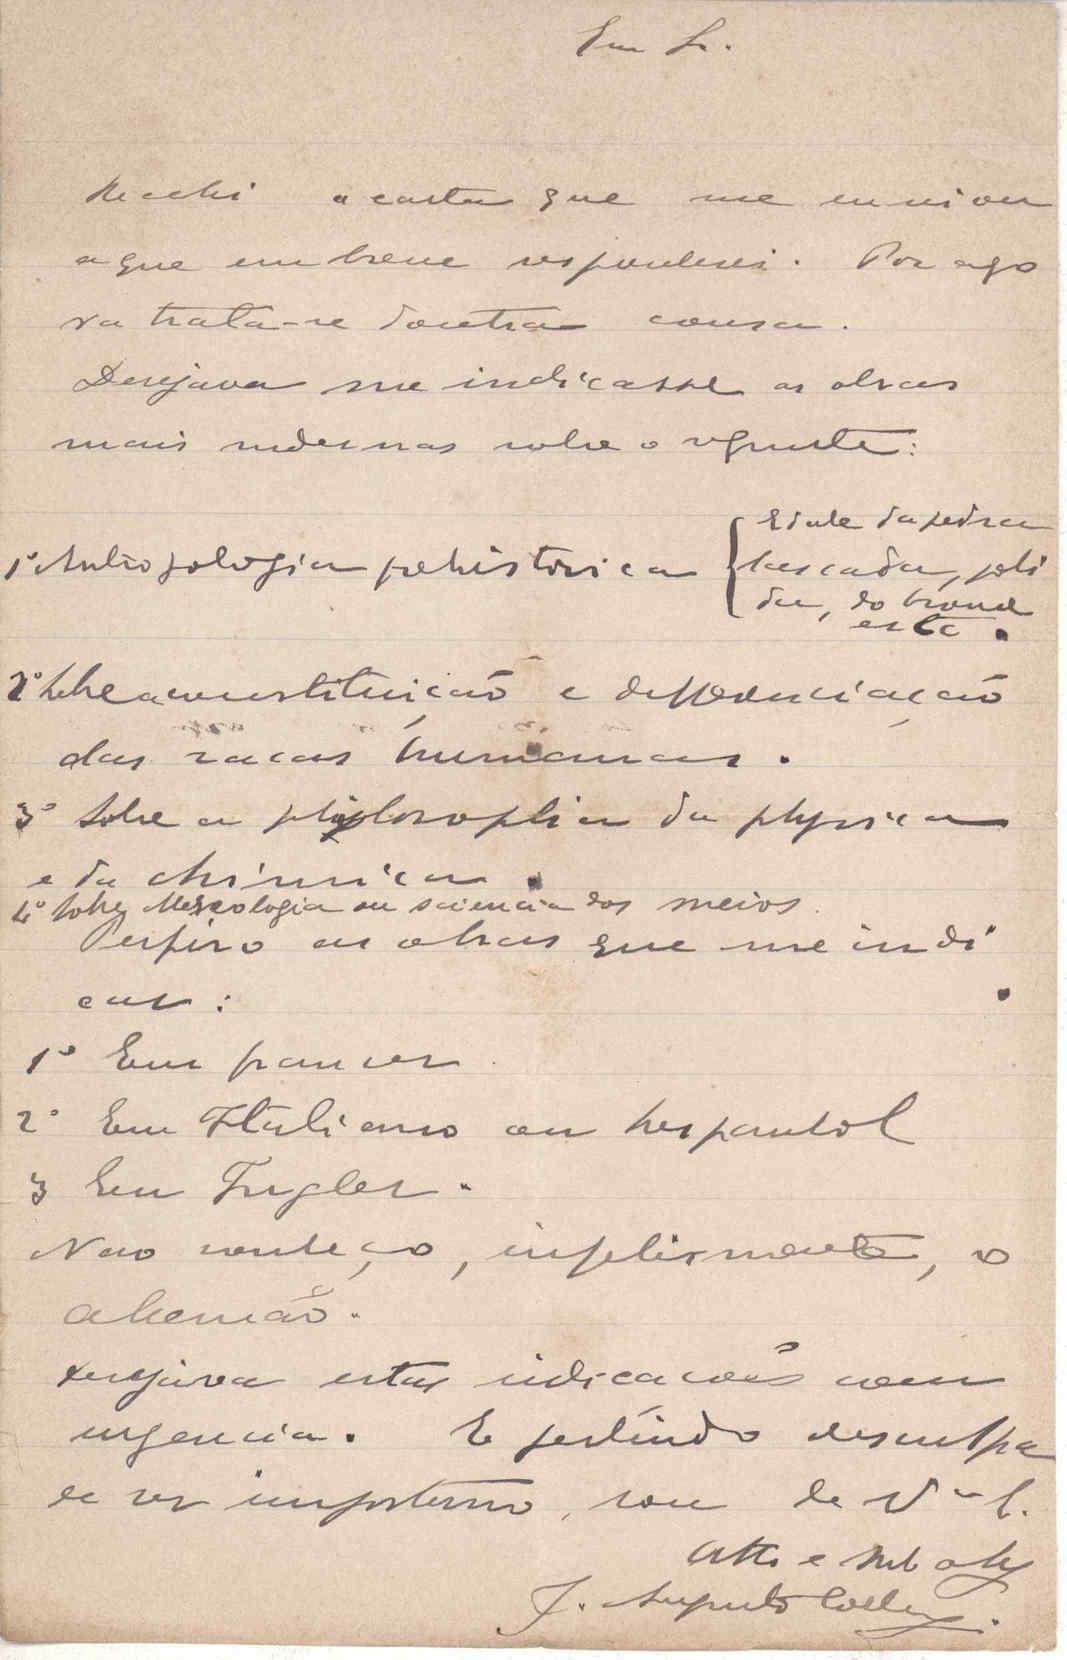 Exm Sr.
Recebi a carta que me enviou
a que em breve responderei. Por ago
ra trata-se doutra cousa.
Desejava me indicasse as obras
mais modernas sobre o seguinte:
1º Antropologia prehistorica { Edade da pedra
lascada, poli
da, do bronze
etc.
2º Sobre a constituição e differenciação
das racas humanas.
3º Sobre a philosophia da physica
e da chimica.
4º Sobre Mesologia ou sciencia dos meios.
Perfiro as obras que me indi
car:
1º Em frances
2º Em Italiano ou hespanhol
3 Em Ingles.
Nao conheço, infelismente, o
alemão.
Desejava estas indicacões com
urgencia. E pedindo desculpa
de ser importuno, sou de V.ª E.
Atto e
J. Augusto Coelho.